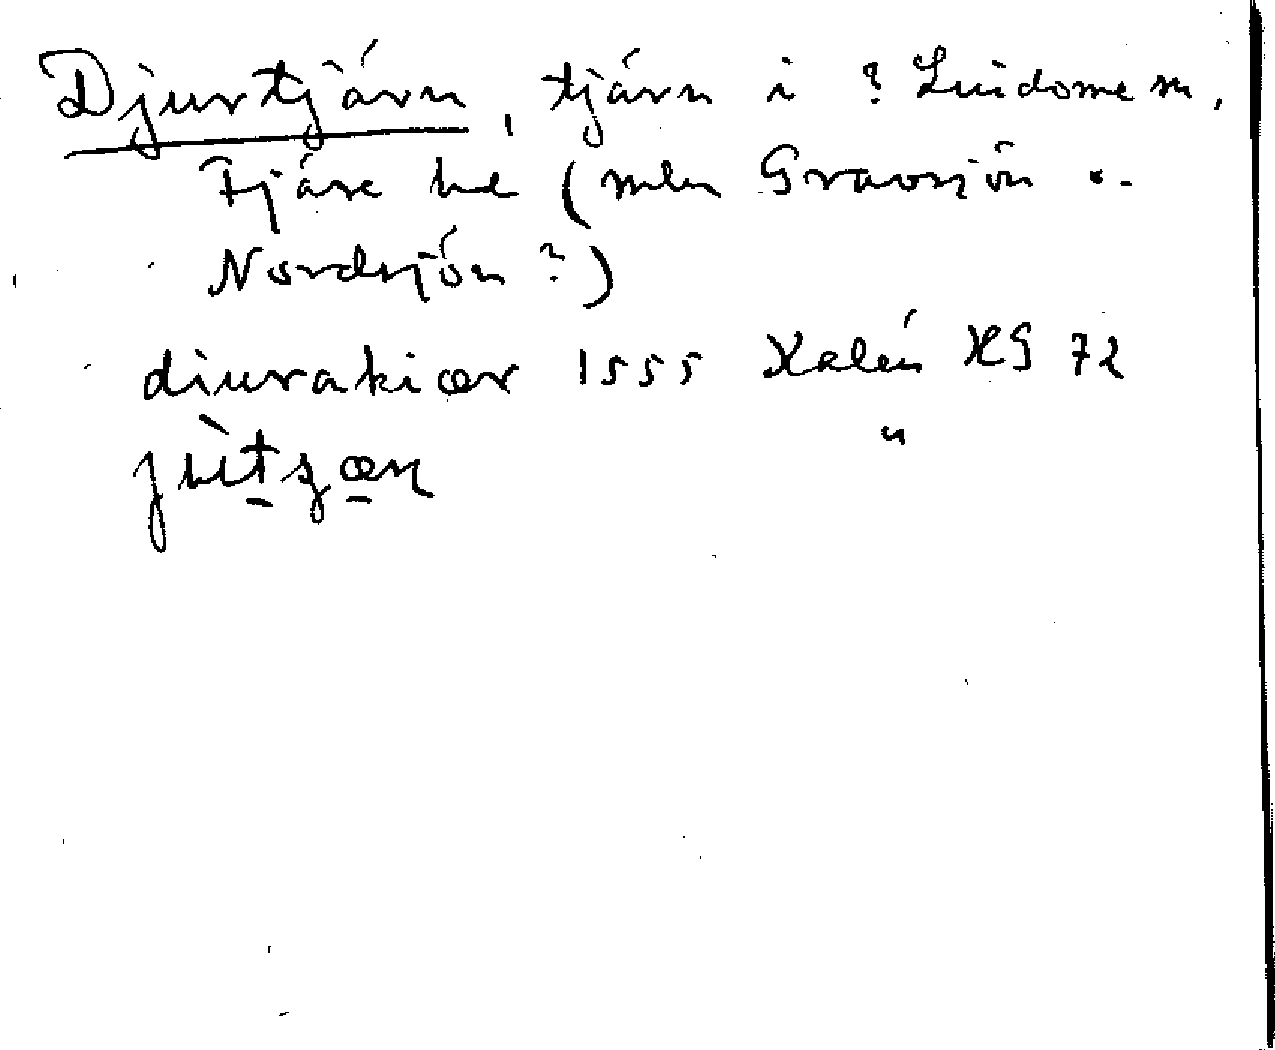 Djurtjärn, tjärn i ? Lindome sn,
Fjäre hd (mln Gravsjön o.
Nordsjön ?)
diurakiær 1555 Kalén HG 72
"